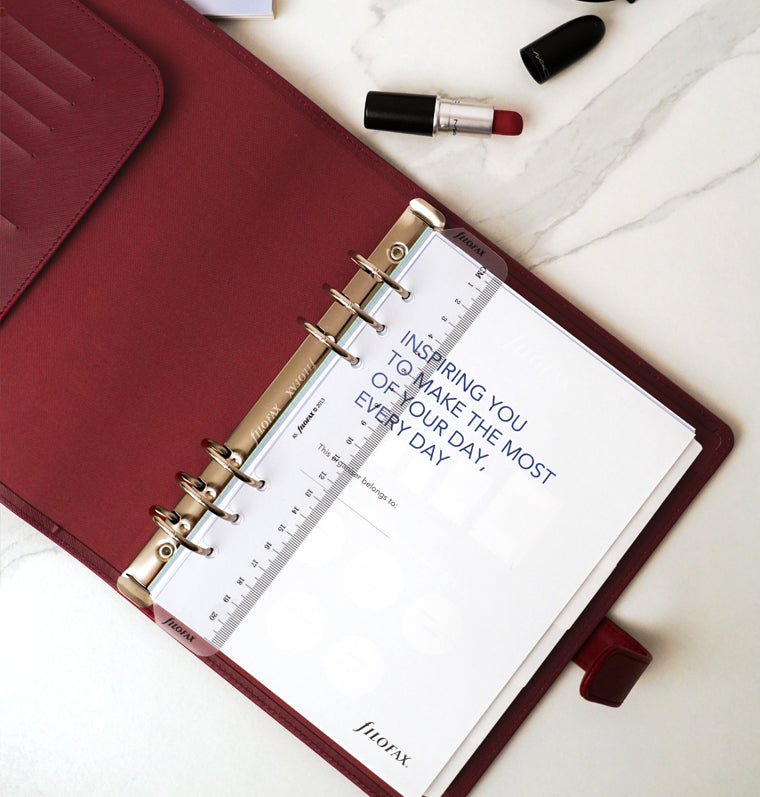 MAC
MAC
FILOFAX
CM
1
2
3
4
INSPIRING YOU
TO MAKE THE MOST
OF YOUR DAY,
EVERY DAY
FILOFAX FILOFAX
A5 FILOFAX © 2013
9
10
This organiser belongs to:
12
13
14
15
16
17
18
19
20
FILOFAX
FILOFAX